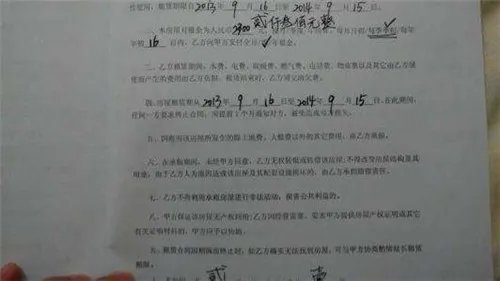 性使用，租赁期自2013年9月16日至2014年9月15日。
二、本房屋月租金为人民币2300 贰仟叁佰元整
年初16日内，乙方向甲方支付全
三、乙方租赁期间，水费、电费、取暖费、燃气费、电话费、物业费以及其它由乙方居
住而产生的费用由乙方负担。租赁结束时，乙方须交清欠费。
四、房屋租赁期从2013年9月16日至2014年9月15日。在此期间，
任何一方要求终止合同，须提前1个月通知对方，
五、因租用该房屋所发生的除土地费、大修费以外的其它费用，由乙方承担。
六、在承租期间，未经甲方同意，乙方无权转租或转借该房屋；不得改变房屋结构及其
用途，由于乙方人为原因造成该房屋及其配套设施损坏的，由乙方承担赔偿责任。
七、乙方不得利用承租房屋进行非法活动，损害公共利益的。
八、甲方保证该房屋无产权纠纷；乙方因经营需要，要求甲方提供房屋产权证明或其它
有关证明材料的，甲方应予以协助。
九、租赁合同因期满而终止时，如乙方确实无法找到房屋，可与甲方协商酌情延长租赁
期限。
贰 壹